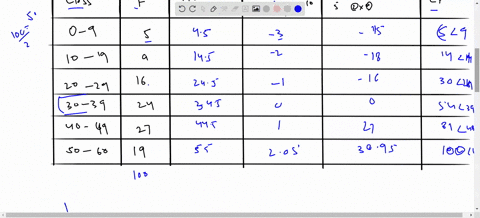 Class F
0-9 5 4.5 -3 -15 5<9
10-19 9 14.5 -2 -18 14<
20-29 16. 24.5 -1 -16 30<
30-39 24 34.5 0 0 54<
40-49 27 44.5 1 27 81<
50-60 19 55 2.05 38.95 100
100